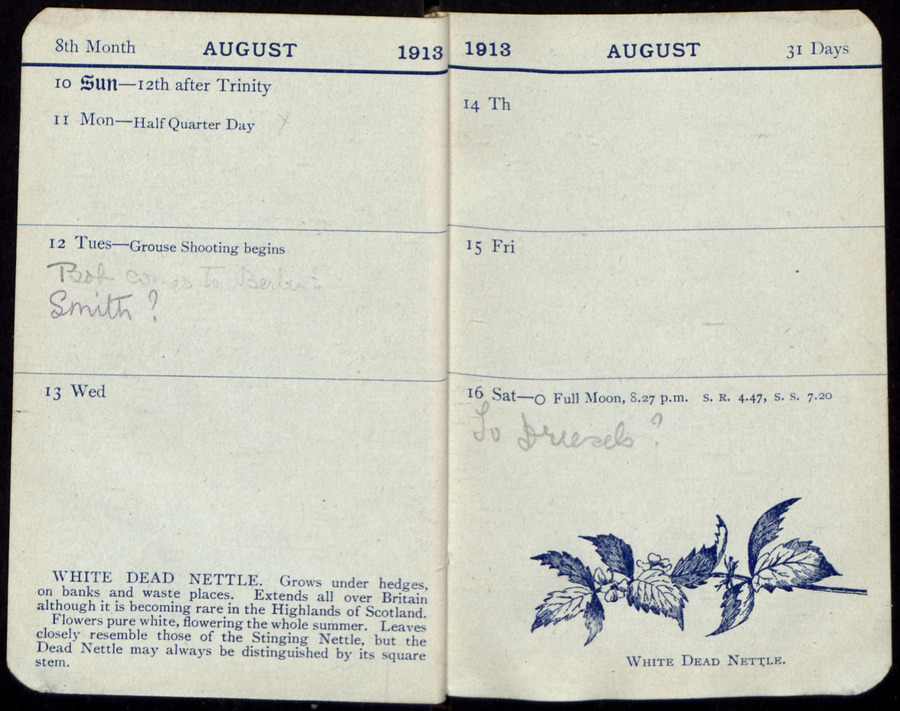 8th Month AUGUST 1913
10 Sun—12th after Trinity
11 Mon—Half Quarter Day
12 Tues—Grouse Shooting begins
Bob comes to Berlin?
Smith?
13 Wed
WHITE DEAD NETTLE. Grows under hedges,
on banks and waste places. Extends all over Britain
although it is becoming rare in the Highlands of Scotland.
Flowers pure white, flowering the whole summer. Leaves
closely resemble those of the Stinging Nettle, but the
Dead Nettle may always be distinguished by its square
stem.
1913 AUGUST 31 Days
14 Th
15 Fri
16 Sat—O Full Moon, 8.27 p.m. S. R. 4.47, S. S. 7.20
To ?
WHITE DEAD NETTLE.